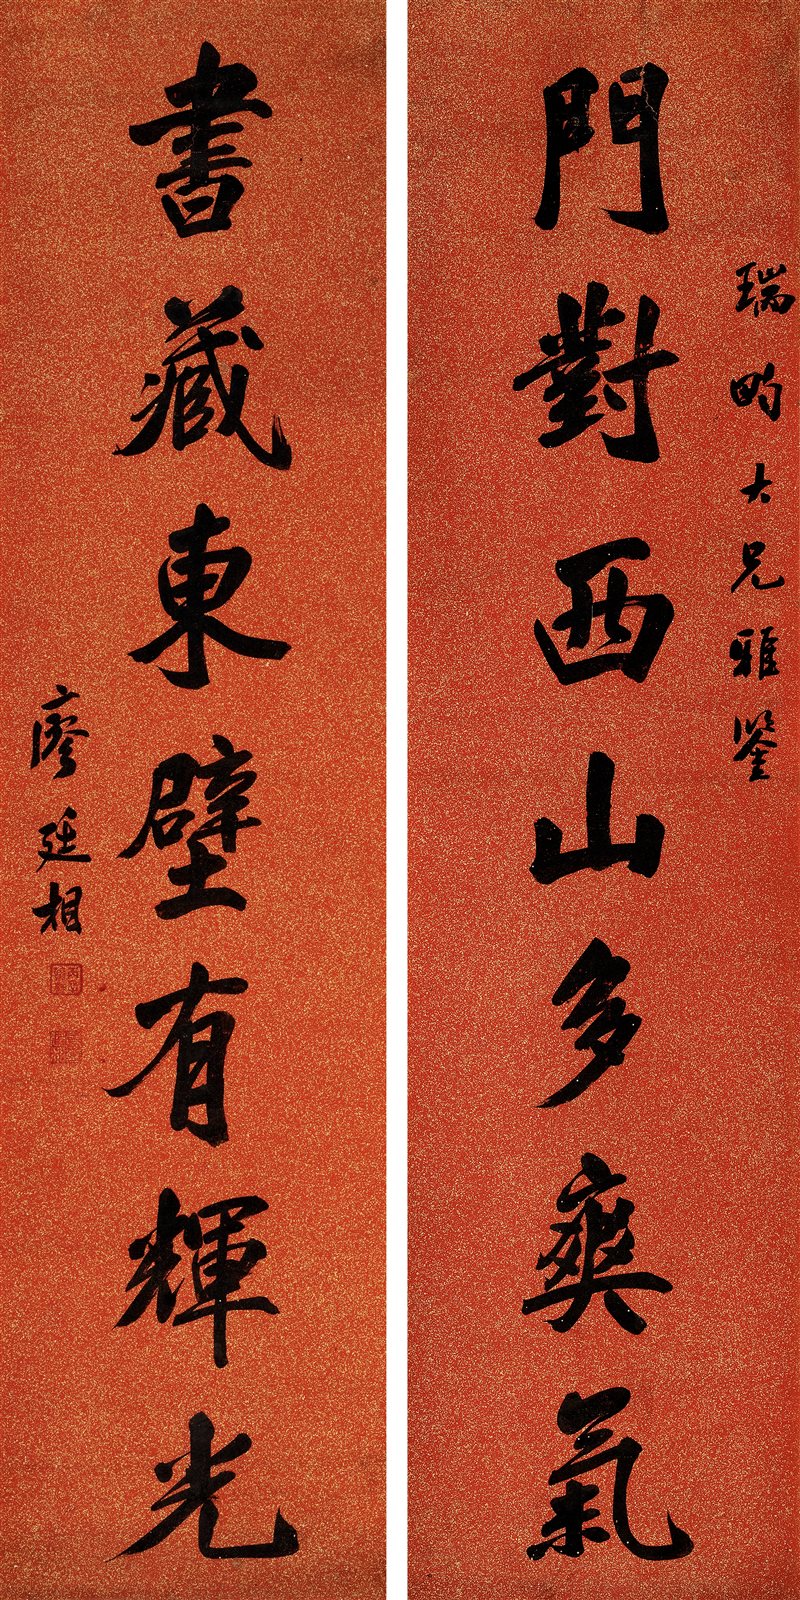 瑞畇大兄雅鑒
門對西山多爽氣
書藏東壁有輝光
廖廷相